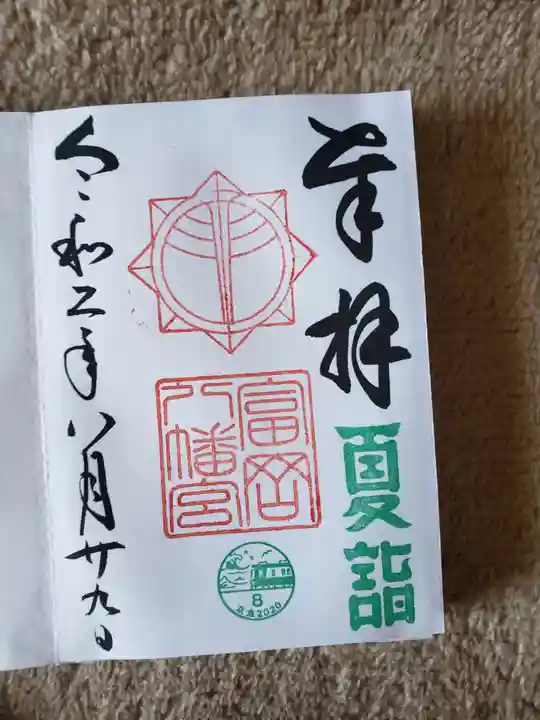 奉拝
夏詣
富岡
八幡宮
8
京急2020
令和二年八月廿九日